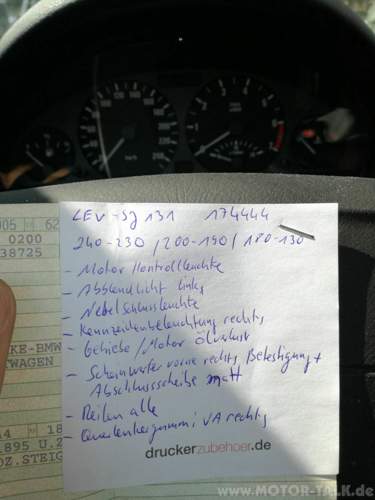 LEV-SJ 131 174444
240-230 / 200-190 / 180-130
- Motor Kontrollleuchte
- Abblendlicht links
- Nebelschlussleuchte
- Kennzeichenbeleuchtung rechts
- Getriebe / Motor Ölverlust
- Scheinwerfer vorne rechts, Befestigung +
Abschlussscheibe matt
- Reifen alle
- Querlenkergummi VA rechts
druckerzubehoer.de
J05 62
0200
38725
KE-BMW
TWAGEN
14 18
1895 U.2
OZ.STEIG
www.MOTOR-TALK.de